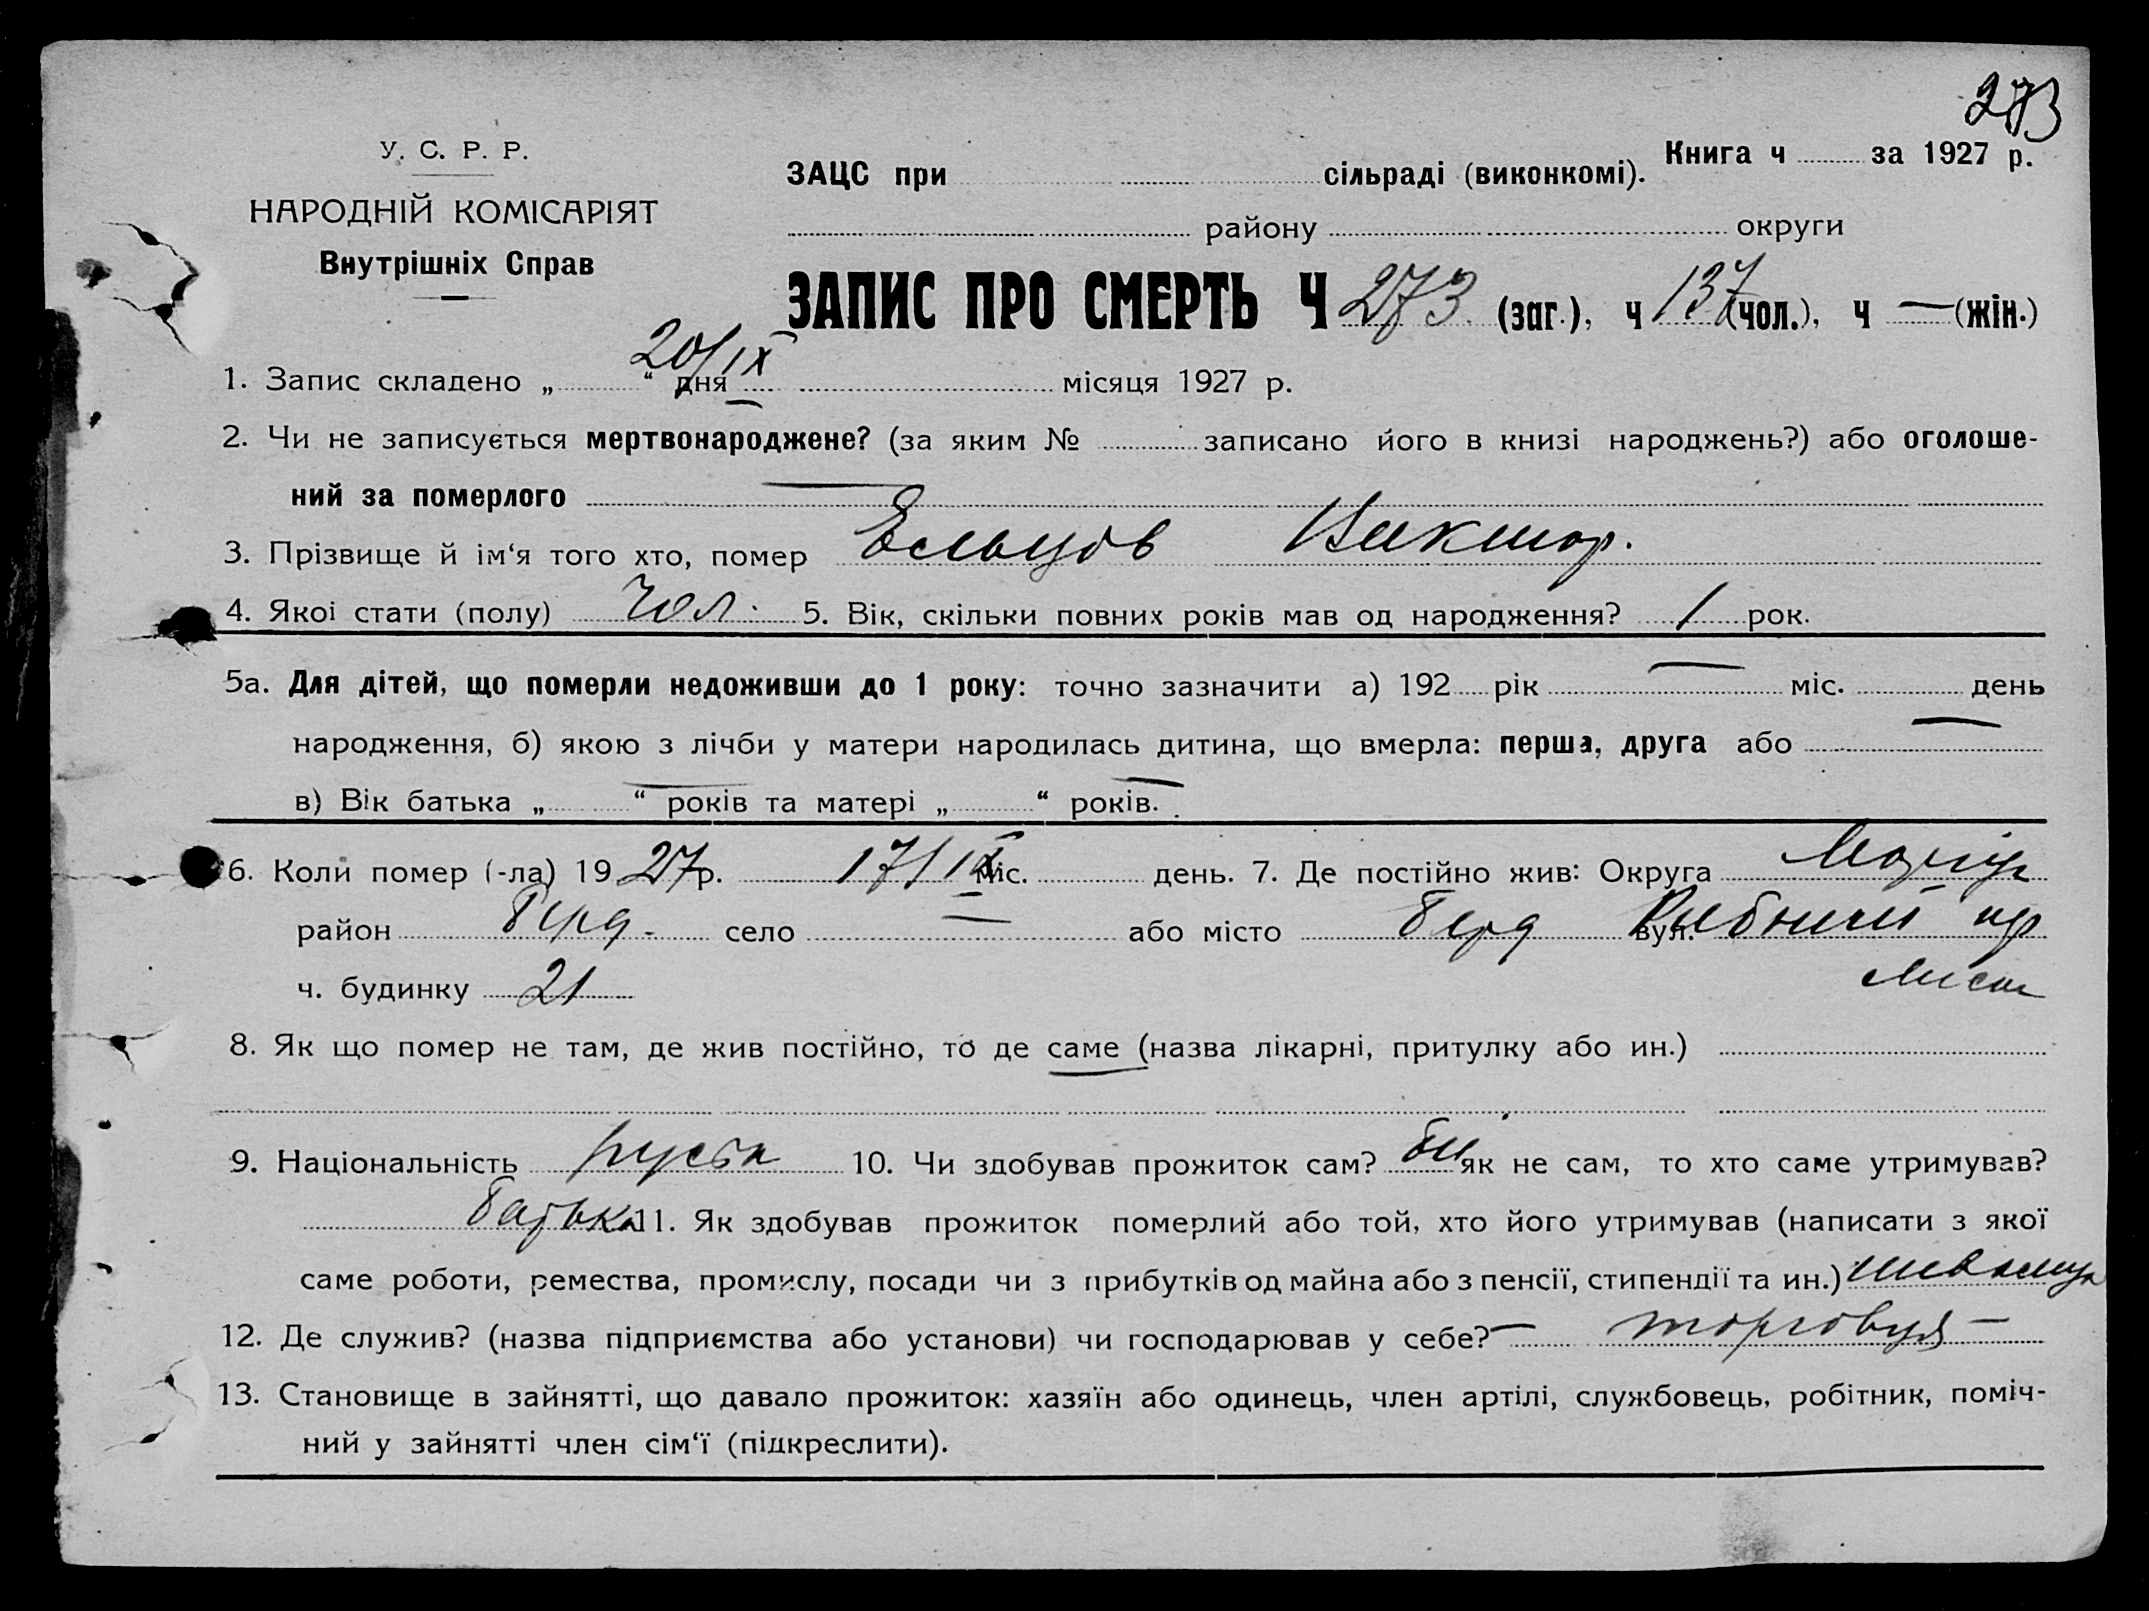 273
У. С. Р. Р.
НАРОДНІЙ КОМІСАРІЯТ
Внутрішніх Справ
Книга ч ........ за 1927 р.
ЗАЦС при ........ сільраді (виконкомі).
........ району ........ округи
ЗАПИС ПРО СМЕРТЬ Ч 273 (заг.), ч 137 (чол.), ч — (жін.)
1. Запис складено „ 20/IX “ дня ........ місяця 1927 р.
2. Чи не записується мертвонароджене? (за яким № ........ записано його в книзі народжень?) або оголоше-
ний за померлого —
3. Прізвище й ім‘я того хто, помер Ельцов Виктор.
4. Якої стати (полу) Чол. 5. Вік, скільки повних років мав од народження? 1 рок.
5а. Для дітей, що померли недоживши до 1 року: точно зазначити а) 192 ... рік — міс. ........ день
народження, б) якою з лічби у матери народилась дитина, що вмерла: перша, друга або —
в) Вік батька „ — “ років та матері „ — “ років.
6. Коли помер (-ла) 19 27 р. 17/IX міс. ........ день. 7. Де постійно жив: Округа
район Берд. село — або місто Берд вул.
ч. будинку 21
8. Як що помер не там, де жив постійно, то де саме (назва лікарні, притулку або ин.) ........
9. Національність 10. Чи здобував прожиток сам? як не сам, то хто саме утримував?
батько 11. Як здобував прожиток померлий або той, хто його утримував (написати з якої
саме роботи, ремества, промислу, посади чи з прибутків од майна або з пенсії, стипендії та ин.)
12. Де служив? (назва підприємства або установи) чи господарював у себе? —
13. Становище в зайнятті, що давало прожиток: хазяїн або одинець, член артілі, службовець, робітник, поміч-
ний у зайнятті член сім‘ї (підкреслити).